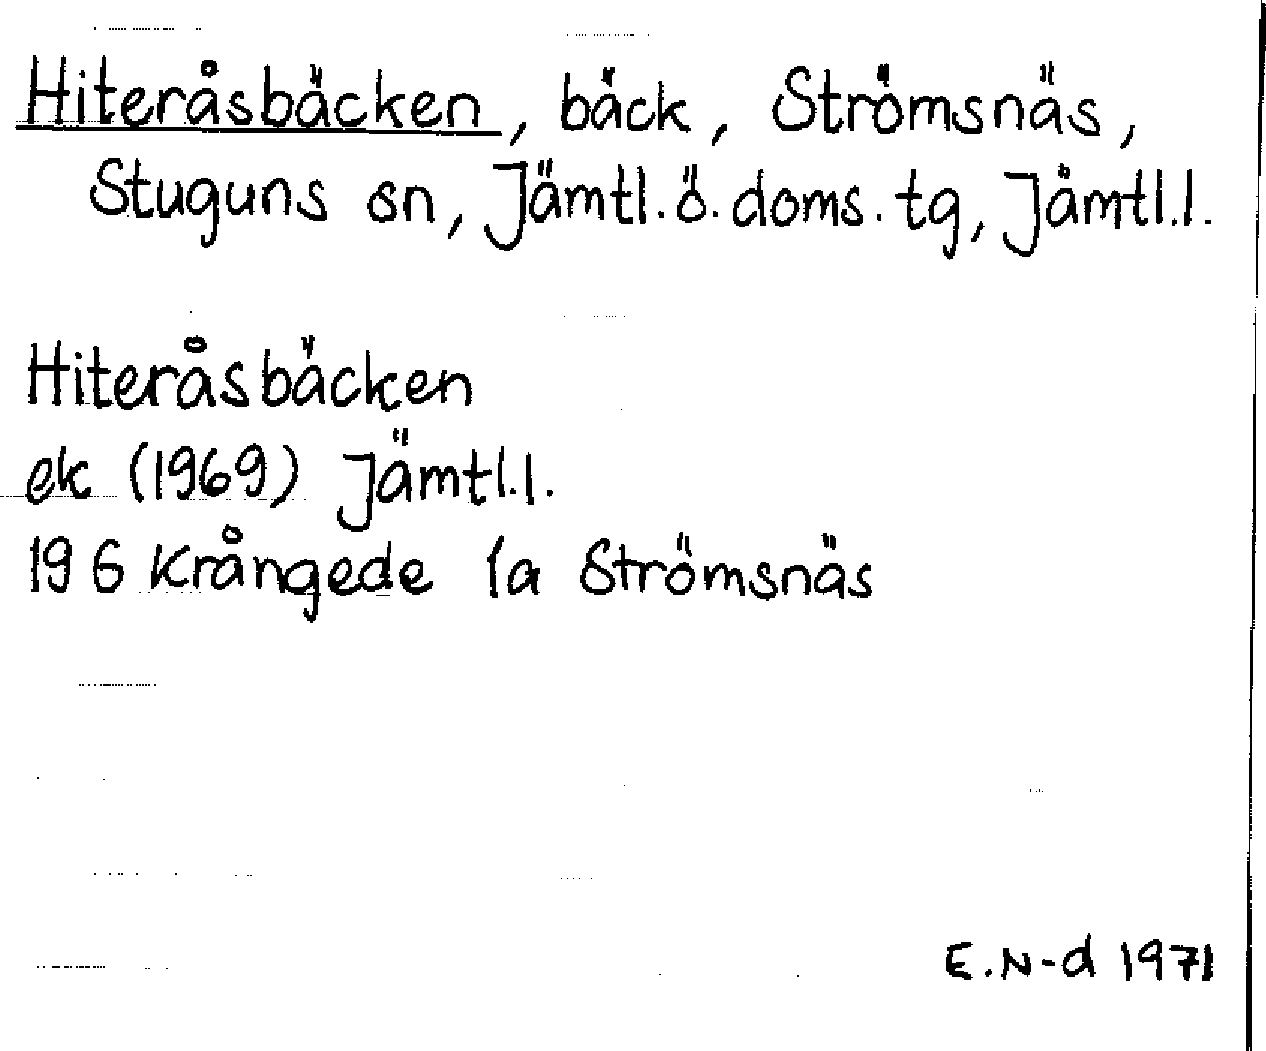 Hiteråsbäcken, bäck, Strömsnäs,
Stuguns sn, Jämtl.ö.doms.tg, Jämtl.l.
Hiteråsbäcken
ek (1969) Jämtl.l.
19 G Krångede 1a Strömsnäs
E.N-d 1971